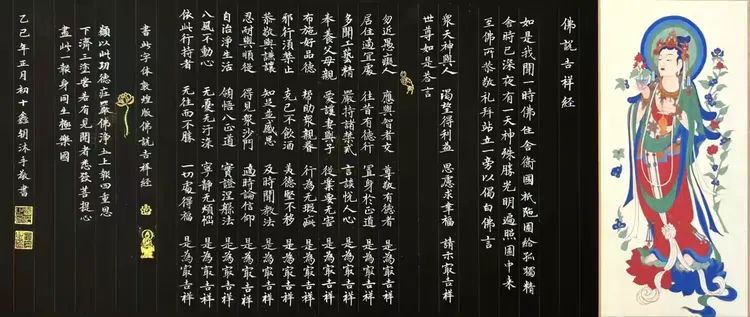 佛說吉祥經
如是我聞一時佛住舍衛國祇陁園給孤獨精
舍時已深夜有一天神殊勝光明遍照園中来
至佛所恭敬礼拜站立一旁以偈白佛言
眾天神與人 渴望得利益 思慮求幸福 請示㝡吉祥
世尊如是荅言
勿近愚癡人 應與智者交 尊敬有德者 是為㝡吉祥
居住適宜處 往昔有德行 置身於正道 是為㝡吉祥
多聞工藝精 嚴持諸禁戒 言談悅人心 是為㝡吉祥
奉養父母親 愛護妻與子 從業要无害 是為㝡吉祥
布施好品德 幫助眾親眷 行為无瑕疵 是為㝡吉祥
邪行須禁止 克己不飲酒 美德堅不移 是為㝡吉祥
恭敬與謙讓 知足並感恩 及時聞教法 是為㝡吉祥
忍耐與順從 得見眾沙門 適時論信仰 是為㝡吉祥
自治淨生活 領悟八正道 實證涅槃法 是為㝡吉祥
八風不動心 无憂无汙染 寧静无煩惱 是為㝡吉祥
依此行持者 无往而不勝 一切處得福 是為㝡吉祥
書此字体敦煌版佛說吉祥經
願以此功德莊嚴佛淨土上報四重恩
下濟三塗苦若有見聞者悉發菩提心
盡此一報身同生極樂國
乙巳年正月初十鑫胡沐手敬書